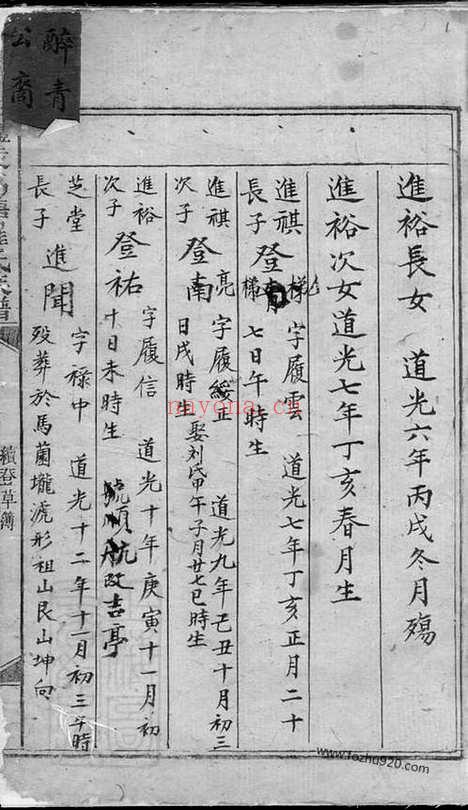 醉青
公裔
進裕長女 道光六年丙戌冬月殤
進裕次女道光七年丁亥春月生
進祺
長子 登 樣 字履雲 道光七年丁亥正月二十
七日午時生
進祺
次子 登南 亮 字履綏 道光九年己丑十月初三
日戌時生 娶劉氏甲午子月廿七巳時生
進裕
次子 登祐 字履信 道光十年庚寅十一月初
十日未時生 號順航改吉亭
芝堂
長子 進聞 字祿中 道光十二年十一月初三午時
歿葬於馬蘭壠虎形祖山艮山坤向
續登草簿
nayona.cn
www.fozhu920.com